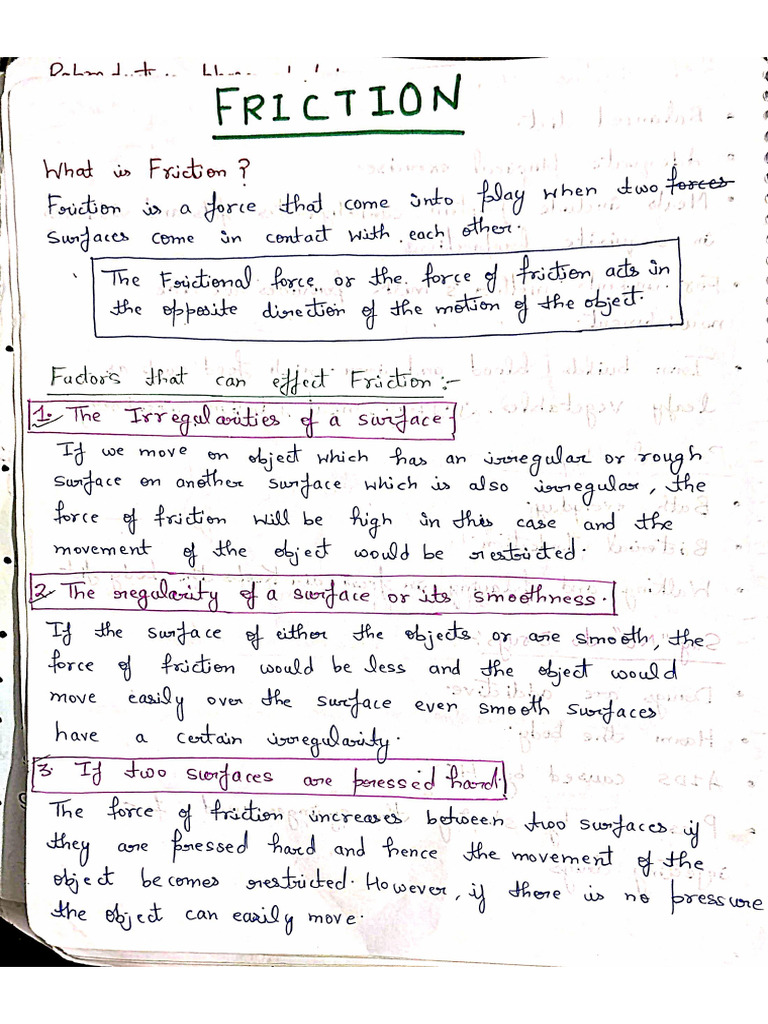 FRICTION
What is Friction?
Friction is a force that come into play when two forces
surfaces come in contact with each other.
The Frictional force or the force of friction acts in
the opposite direction of the motion of the object.
Factors that can effect Friction:-
1. The Irregularities of a surface
If we move on object which has an irregular or rough
surface on another surface which is also irregular, the
force of friction will be high in this case and the
movement of the object would be restricted.
2. The regularity of a surface or its smoothness.
If the surface of either the objects or are smooth, the
force of friction would be less and the object would
move easily over the surface even smooth surfaces
have a certain irregularity.
3. If two surfaces are pressed hard.
The force of friction increases between two surfaces if
they are pressed hard and hence the movement of the
object becomes restricted. However, if there is no pressure
the object can easily move.